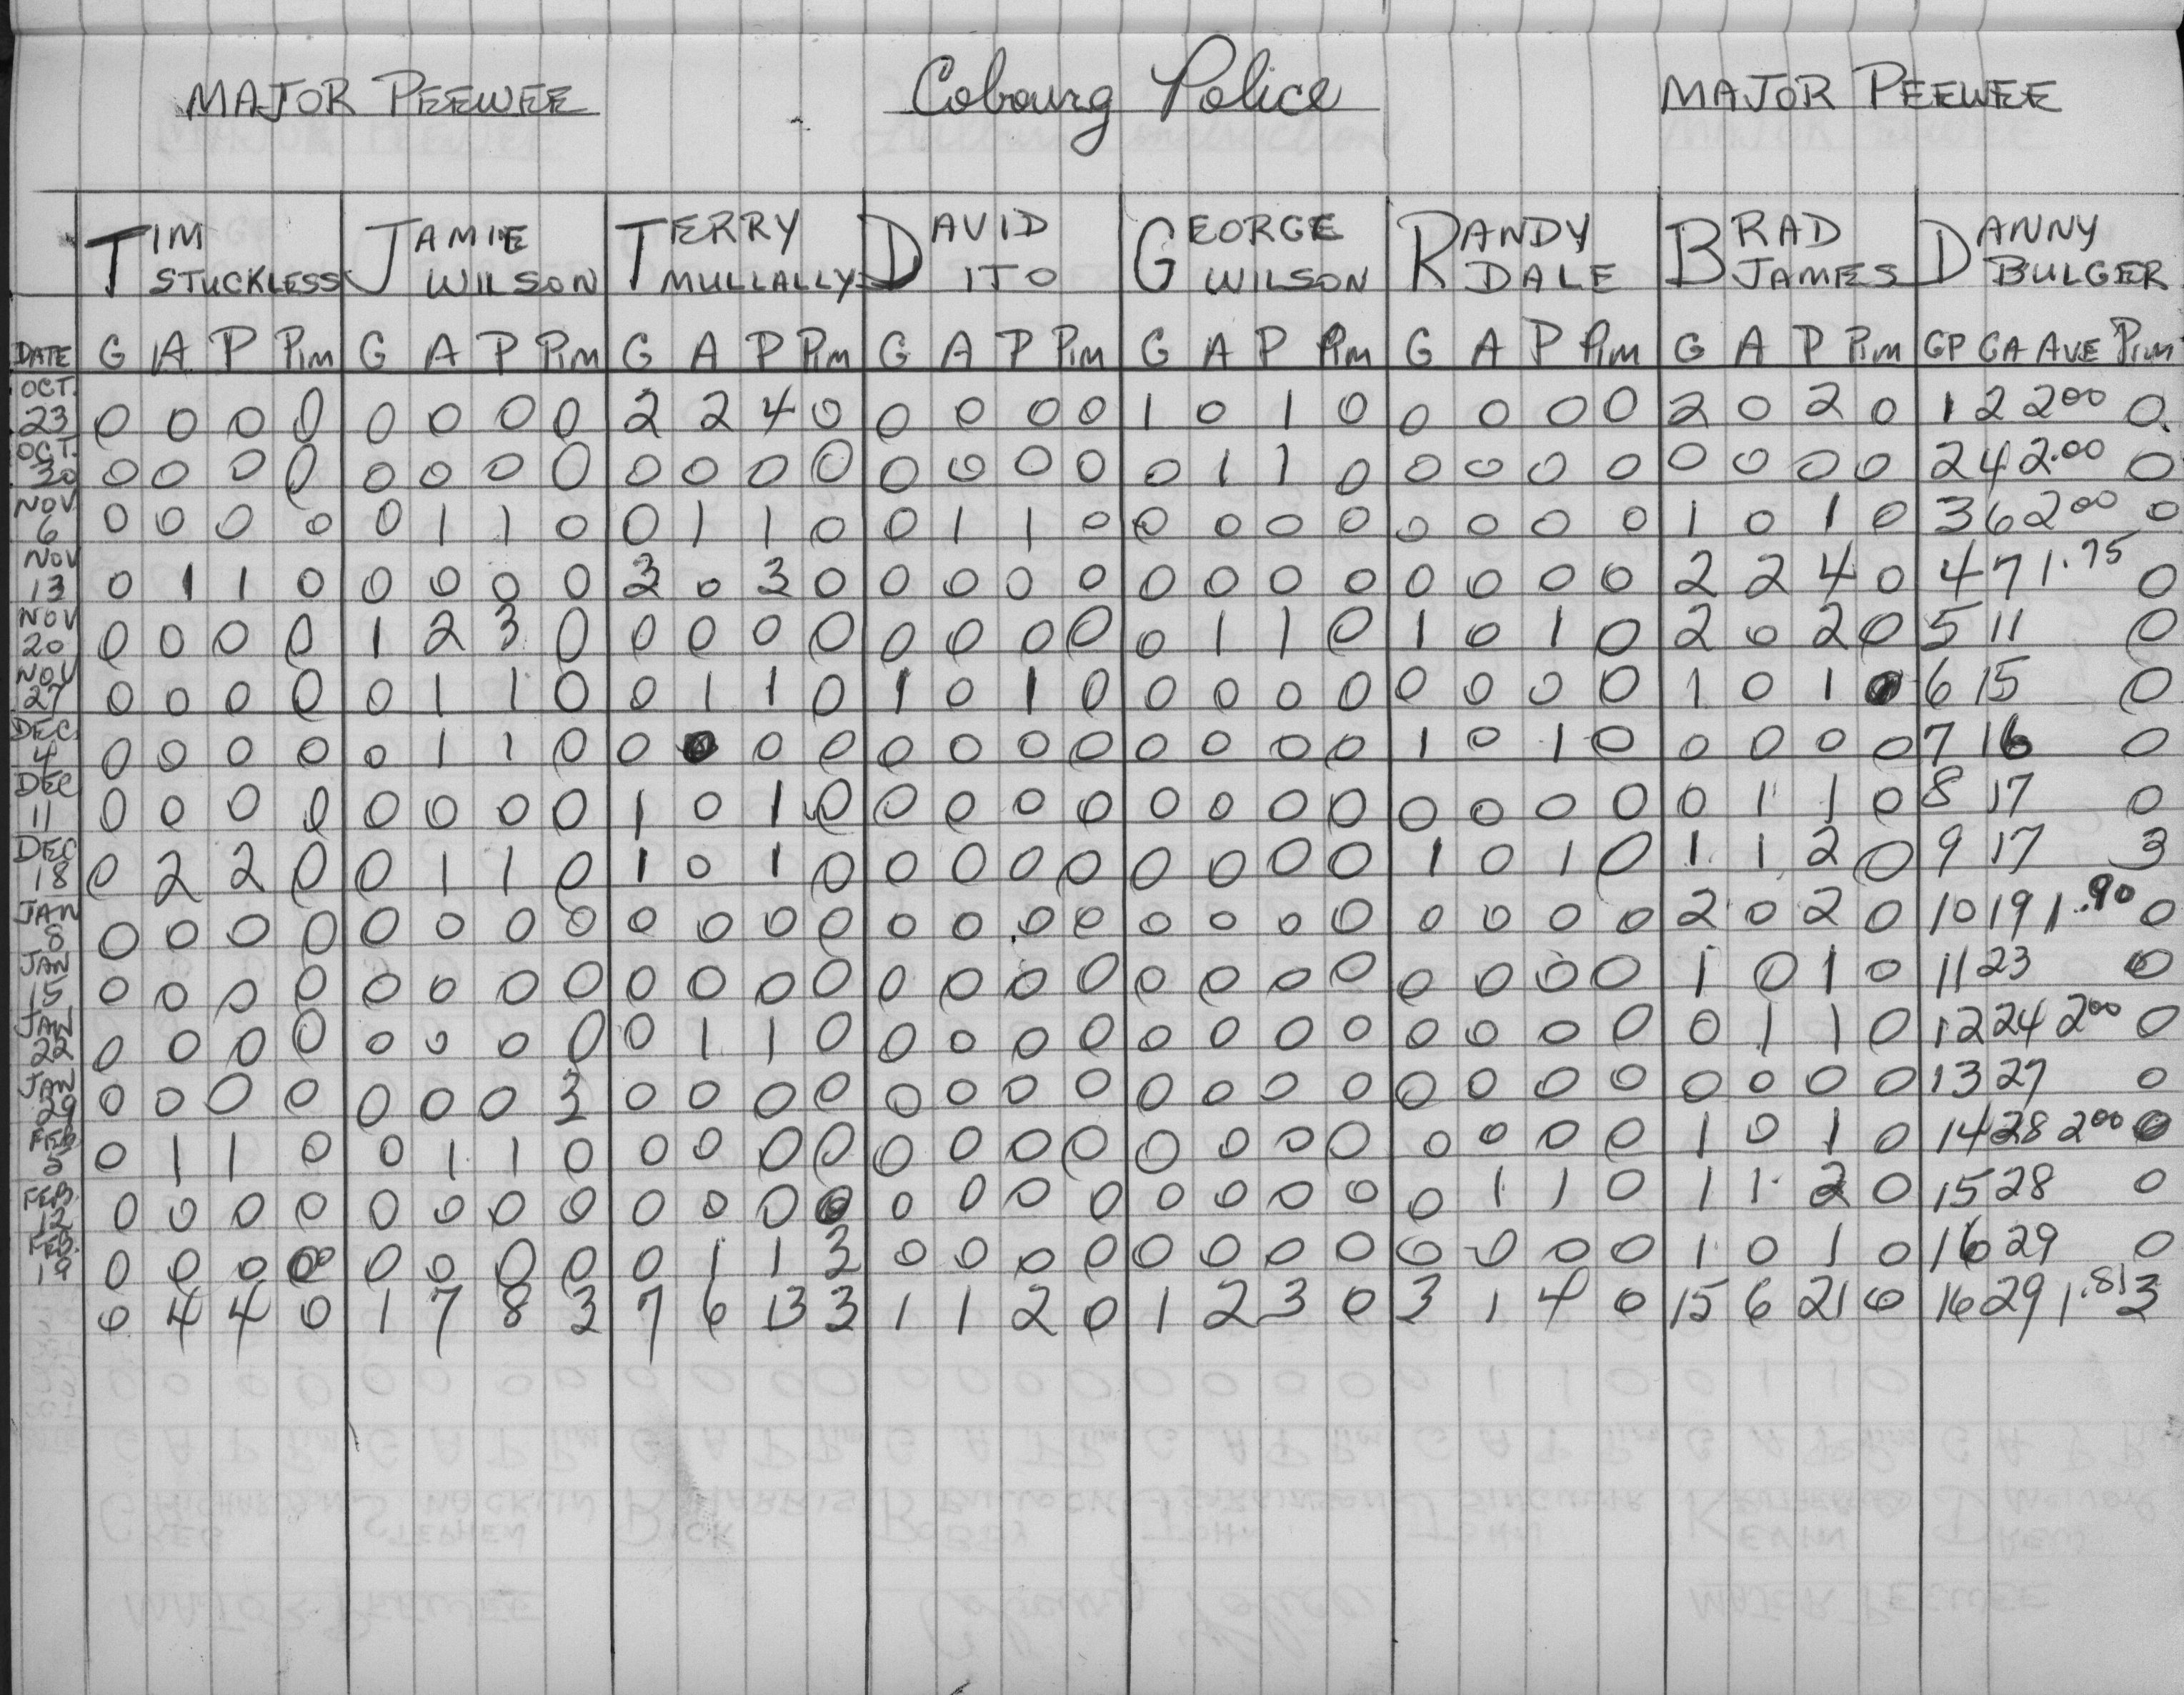 MAJOR PEEWEE Cobourg Police MAJOR PEEWEE
TIM JAMIE TERRY DAVID GEORGE RANDY BRAD DANNY
STUCKLESS WILSON MULLALLY ITO WILSON DALE JAMES BULGER
DATE G A P Pim G A P Pim G A P Pim G A P Pim G A P Pim G A P Pim G A P Pim GP GA AVE Pim
OCT. 23 0 0 0 0 0 0 0 0 2 2 4 0 0 0 0 0 1 0 1 0 0 0 0 0 2 0 2 0 1 2 2.00 0
OCT. 30 0 0 0 0 0 0 0 0 0 0 0 0 0 0 0 0 0 1 1 0 0 0 0 0 0 0 0 0 2 4 2.00 0
NOV 6 0 0 0 0 0 1 1 0 0 1 1 0 0 1 1 0 0 0 0 0 0 0 0 0 1 0 1 0 3 6 2.00 0
NOV 13 0 1 1 0 0 0 0 0 3 0 3 0 0 0 0 0 0 0 0 0 0 0 0 0 2 2 4 0 4 7 1.75 0
NOV 20 0 0 0 0 1 2 3 0 0 0 0 0 0 0 0 0 0 1 1 0 1 0 1 0 2 0 2 0 5 11 0
NOV 27 0 0 0 0 0 1 1 0 0 1 1 0 1 0 1 0 0 0 0 0 0 0 0 0 1 0 1 0 6 15 0
DEC 4 0 0 0 0 0 1 1 0 0 0 0 0 0 0 0 0 0 0 0 0 1 0 1 0 0 0 0 0 7 16 0
DEC 11 0 0 0 0 0 0 0 0 1 0 1 0 0 0 0 0 0 0 0 0 0 0 0 0 0 1 1 0 8 17 0
DEC 18 0 2 2 0 0 1 1 0 1 0 1 0 0 0 0 0 0 0 0 0 1 0 1 0 1 1 2 0 9 17 3
JAN 8 0 0 0 0 0 0 0 0 0 0 0 0 0 0 0 0 0 0 0 0 0 0 0 0 2 0 2 0 10 19 1.90 0
JAN 15 0 0 0 0 0 0 0 0 0 0 0 0 0 0 0 0 0 0 0 0 0 0 0 0 1 0 1 0 11 23 0
JAN 22 0 0 0 0 0 0 0 0 0 1 1 0 0 0 0 0 0 0 0 0 0 0 0 0 0 1 1 0 12 24 2.00 0
JAN 29 0 0 0 0 0 0 0 3 0 0 0 0 0 0 0 0 0 0 0 0 0 0 0 0 0 0 0 0 13 27 0
FEB 5 0 1 1 0 0 1 1 0 0 0 0 0 0 0 0 0 0 0 0 0 0 0 0 0 1 0 1 0 14 28 2.00 0
FEB 12 0 0 0 0 0 0 0 0 0 0 0 0 0 0 0 0 0 0 0 0 0 1 1 0 1 1 2 0 15 28 0
FEB. 19 0 0 0 0 0 0 0 0 0 1 1 3 0 0 0 0 0 0 0 0 0 0 0 0 1 0 1 0 16 29 0
0 4 4 0 1 7 8 3 7 6 13 3 1 1 2 0 1 2 3 0 3 1 4 0 15 6 21 0 16 29 1.81 3